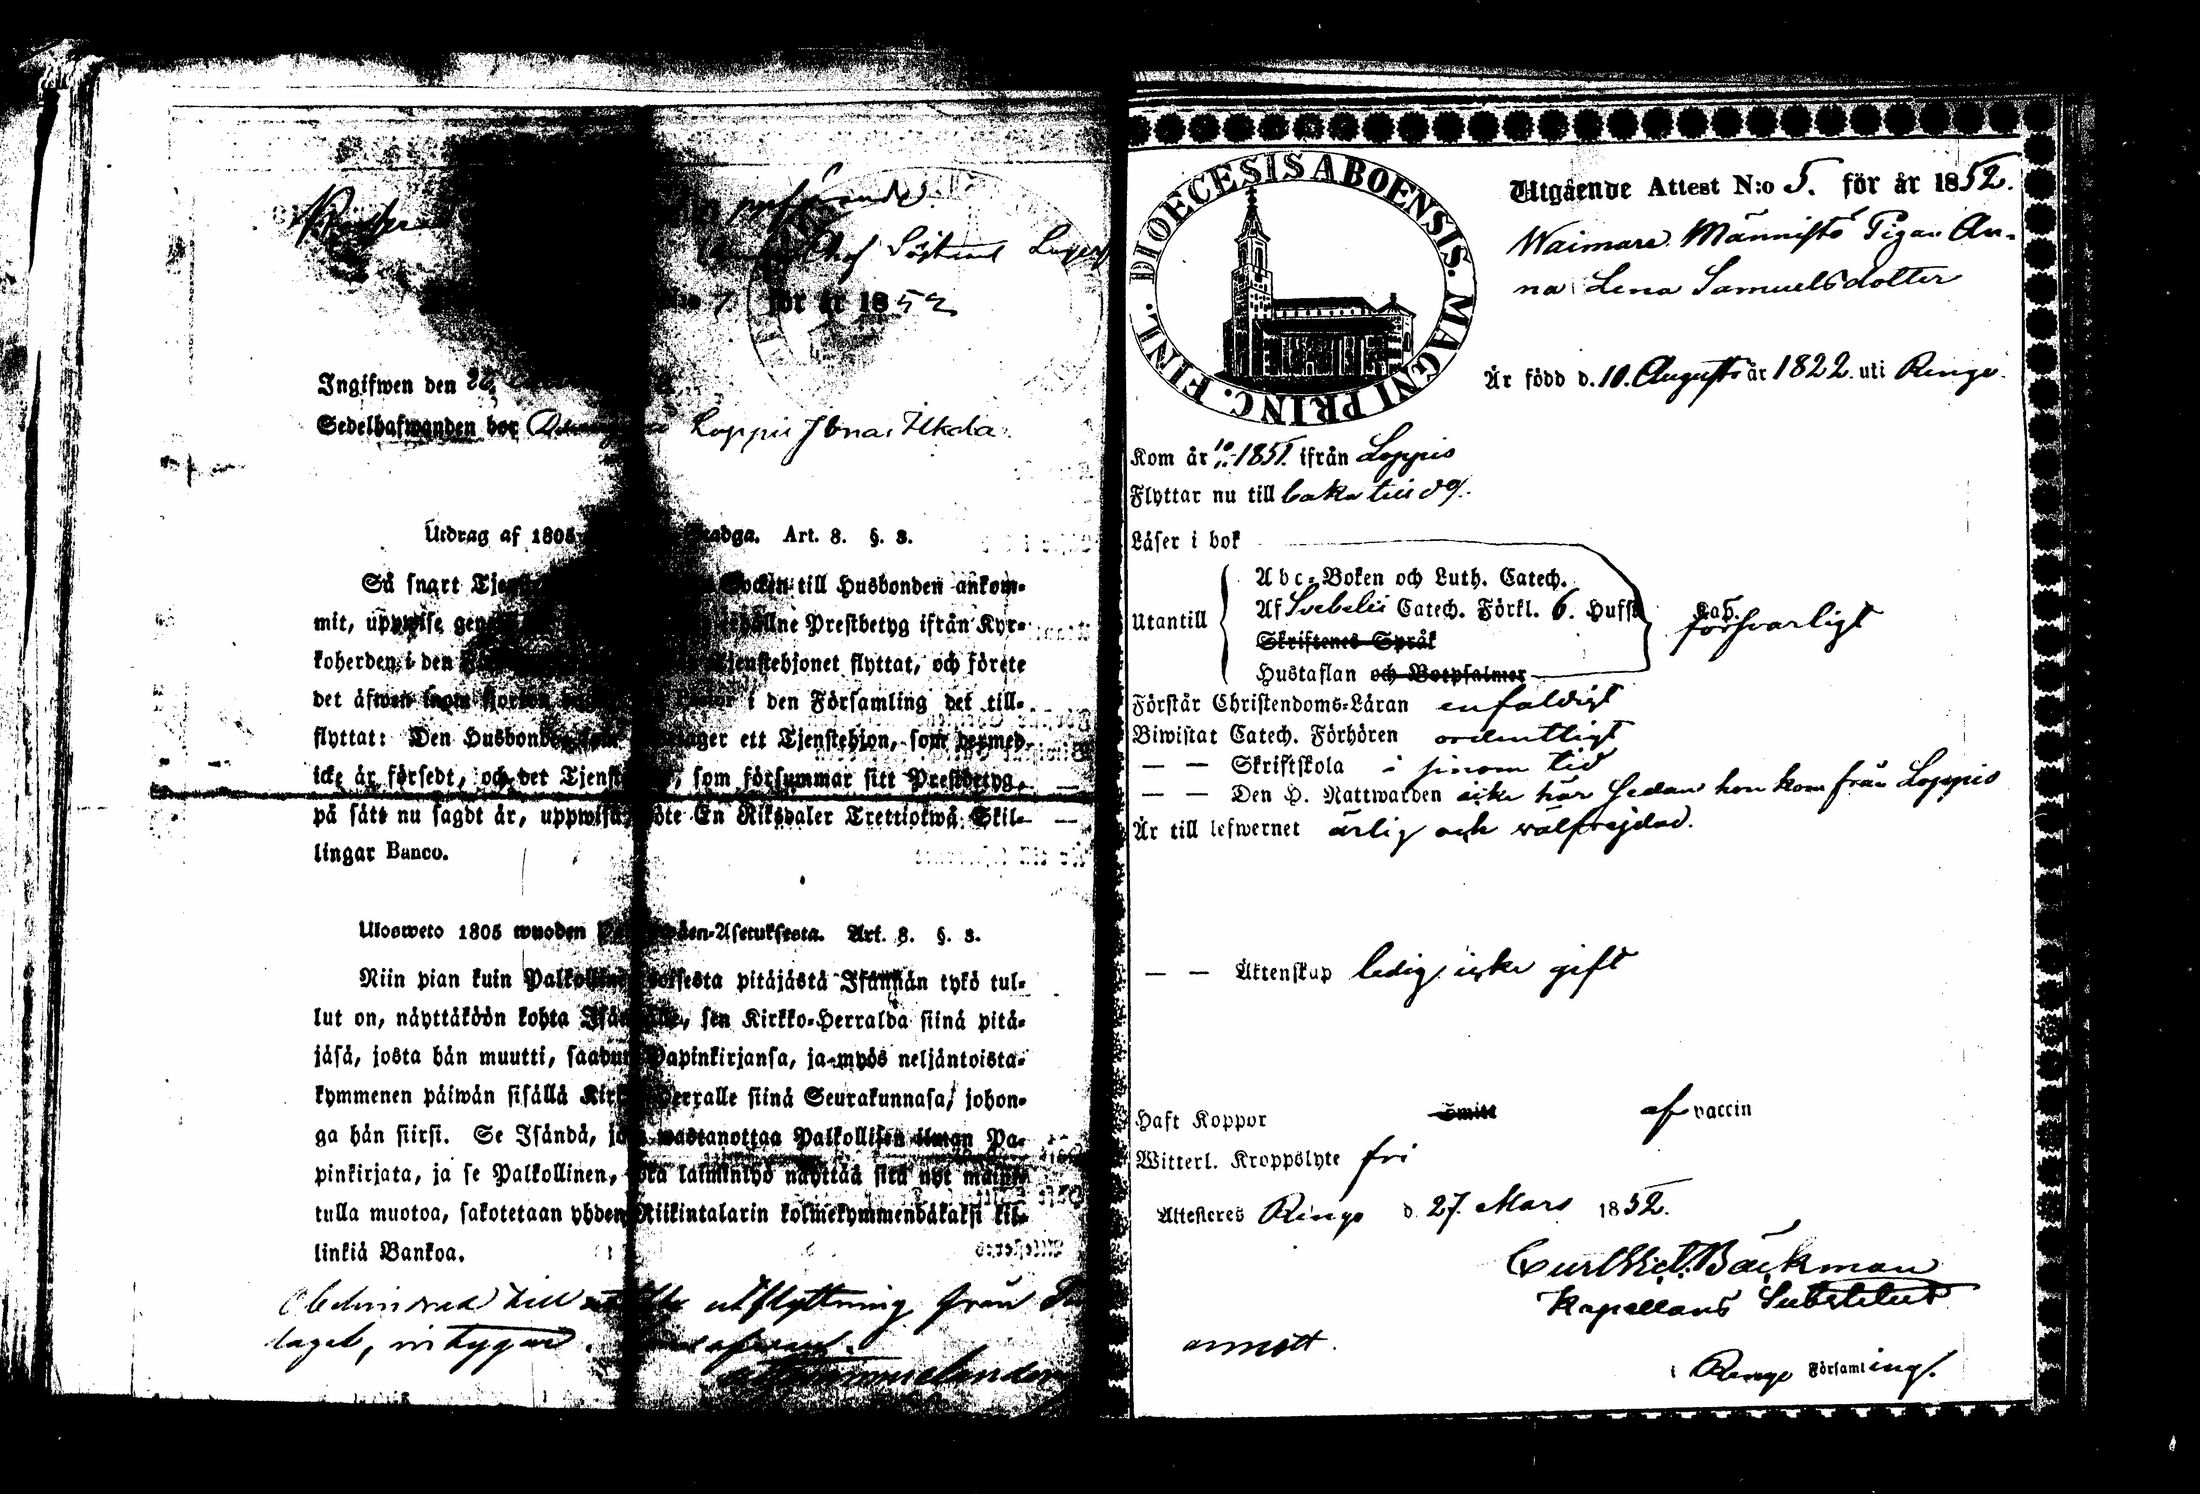 för år 1852
Ingifwen den 26
Sedelhafwanden bor Loppis Jbnar Ilkala.
Utdrag af 1805 Stadga. Art. 8. §. 3.
Så snart Socken till Husbonden ankom-
mit, uppwise erhållne Prestbetyg ifrån Kyr-
koherden i den Tjenstehjonet flyttat, och förete
det äfwen inom fjorton Pastor i den Församling det till-
flyttat: Den Husbonde antager ett Tjenstehjon, som dermed
icke är försedt, och det Tjenstehjon, som försummar sitt Prestbetyg,
på sätt nu sagdt är, uppwisa, böte En Riksdaler Trettiotwå Skil-
lingar Banco.
Ulosweto 1805 wuoden Asetuksesta. Art. 8. §. 3.
Niin pian kuin Palkollinen toisesta pitäjästä Isännän tykö tul-
lut on, näyttäköön kohta Isännälle, sen Kirkko-Herralda siinä pitä-
jäsä, josta hän muutti, saadun Papinkirjansa, ja myös neljäntoista-
kymmenen päiwän sisällä Kirkko-Herralle siinä Seurakunnasa, johon-
ga hän siirsi. Se Isändä, joka wastanottaa Palkollisen ilman Pa-
pinkirjata, ja se Palkollinen, joka laiminlyö näyttää sitä nyt mainit-
tulla muotoa, sakotetaan yhden Riikintalarin kolmekymmendäkaksi kil-
linkiä Bankoa.
Obehindrad till utflyttning från
laget, intygar.
DIOECESIS ABOENSIS. MAGNI PRINC. FINL.
Utgående Attest N:o 5. för år 1852.
Waimare Männistö Pigan An-
na Lena Samuelsdotter
Är född d. 10. Augusti år 1822. uti Rengo.
Kom år 1851. ifrån Loppis
Flyttar nu till baka till dg.
Läser i bok
Abc-Boken och Luth. Catech.
Utantill Af Svebelii Catech. Förkl. 6. Hufst. Kap. försvarligt
Skriftenes Språk
Hustaflan och Botpsalmer
Förstår Christendoms-Läran enfaldigt
Biwistat Catech. Förhören ordentligt
— — Skriftskola i sinom tid
— — Den H. Nattwarden icke här sedan hon kom från Loppis
Är till lefwernet ärlig och välfrejdad.
— — Äktenskap ledig icke gift
Haft Koppor Smitt af vaccin
Witterl. Kroppslyte fri
Attesteres Rengo d. 27. Mars 1852.
Carl Vict. Bäckman
Kapellans Substitut
annott.
i Rengo Församling.